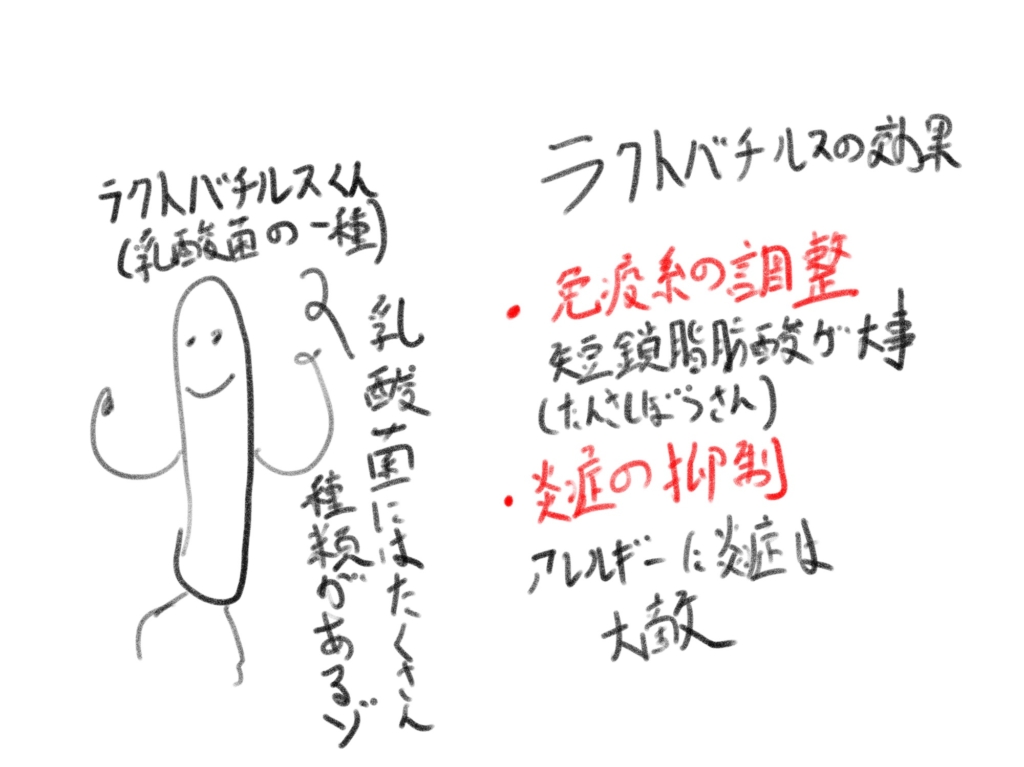 ラクトバチルスくん
(乳酸菌の一種)
乳酸菌にはたくさん
種類があるゾ
ラクトバチルスの効果
・免疫系の調整
短鎖脂肪酸が大事
(たんさしぼうさん)
・炎症の抑制
アレルギーに炎症は
大敵